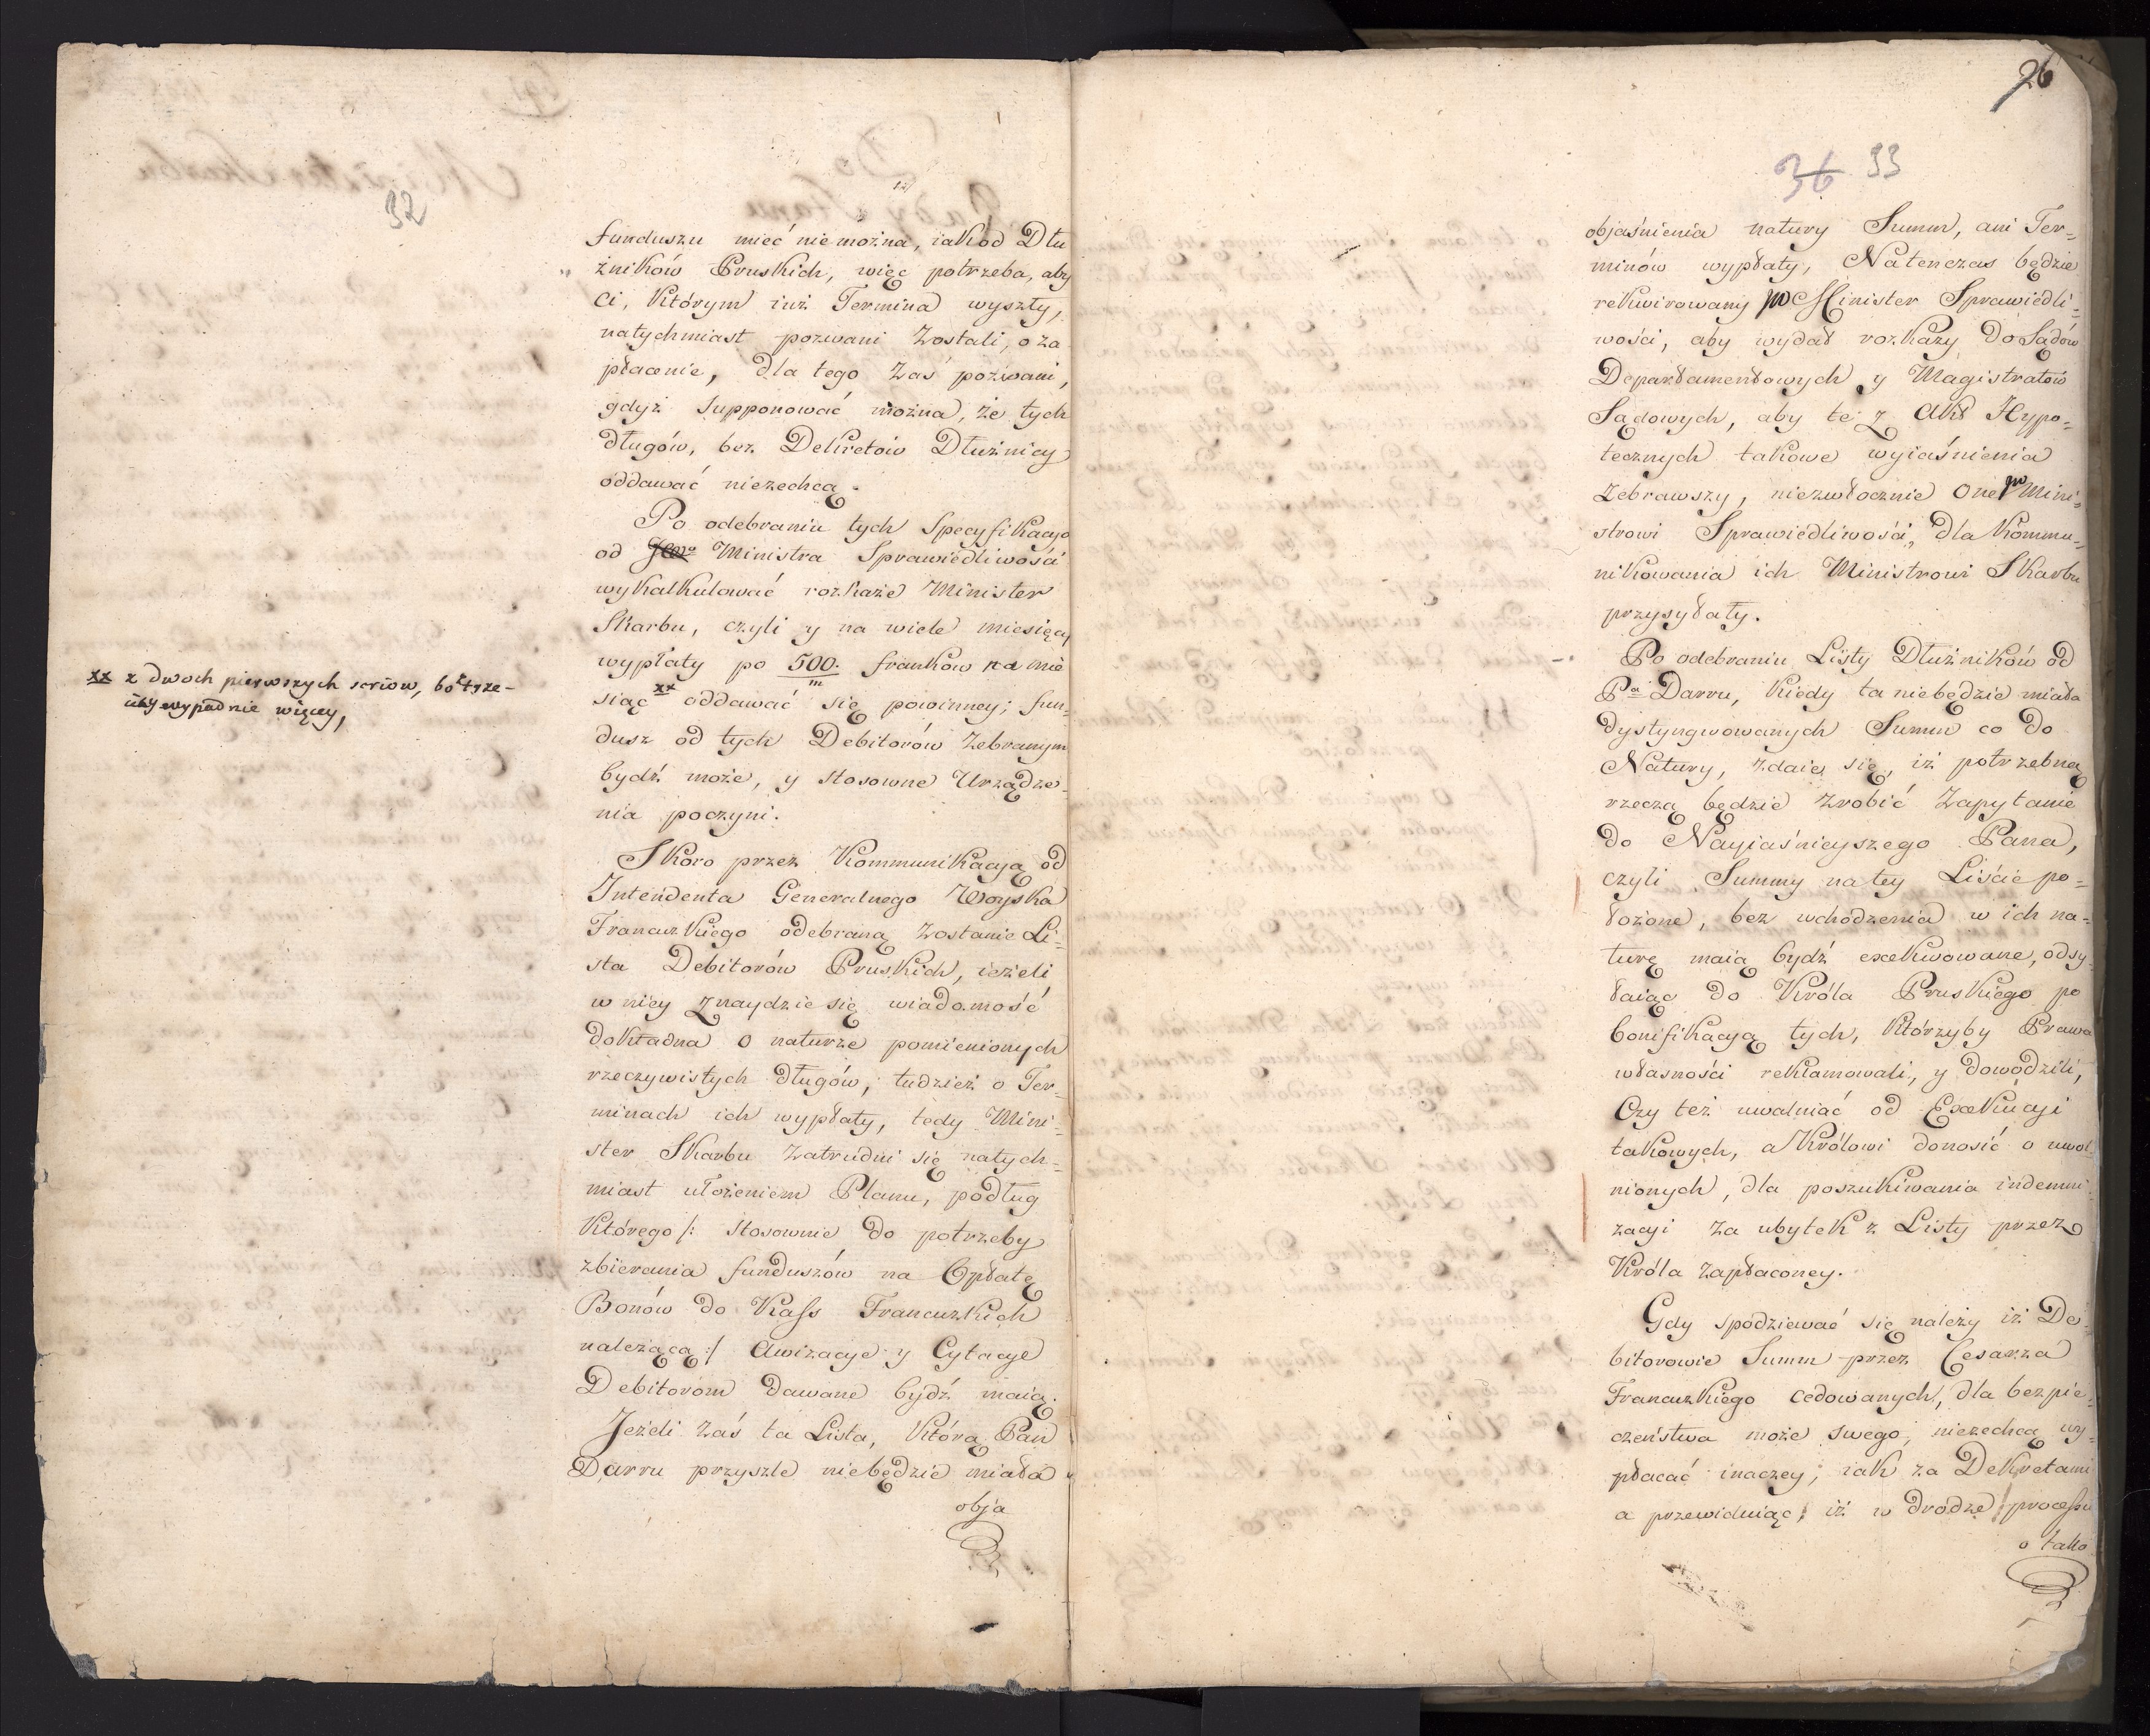 32
funduszu mieć nie można, iak od Dłu
żników Pruskich, więc potrzeba, aby
ci, którym iuż Termina wyszły,
natychmiast pozwani zostali, o za
płacenie, dla tego zaś pozwani,
gdyż supponować można, że tych
długów, bez Dekretów Dłużnicy
oddawać niezechcą.
Po odebraniu tych Specyfikacyi
od Ministra Sprawiedliwości
wykalkulować rozkaże Minister
Skarbu, czyli y na wiele miesięcy
wypłaty po 500. franków na mie
m
siąc xx oddawać się powinney; fun=
dusz od tych Debitorów zebranym
bydź może, y stosowne Urządze=
nia poczyni.
xx z dwoch pierwszych seriow, bo z trze-
ciey wypadnie więcey,
Skoro przez Kommunikacyą od
Intendenta Generalnego Woyska
Francuzkiego odebraną zostanie Li=
sta Debitorów Pruskich, ieżeli
w niey znaydzie się wiadomość
dokładna o naturze pomienionych
rzeczywistych długów, tudzież o Ter=
minach ich wypłaty, tedy Mini=
ster Skarbu zatrudni się natych=
miast ułożeniem Planu, podług
którego /: stosownie do potrzeby
zbierania funduszów na Opłatę
Bonów do Kass Francuzkich
należącą :/ Awizacye y Cytacye
Debitorom dawane bydź maią.
Jeżeli zaś ta Lista, którą Pan
Darru przyszle niebędzie miała
obja
26
36 33
objaśnienia natury Summ, ani Ter=
minów wypłaty, Natenczas będzie
rekwirowany JW Minister Sprawiedli=
wości, aby wydał rozkazy do Sądów
Departamentowych y Magistratów
Sądowych, aby te z Akt Hypo=
tecznych takowe wyiaśnienia
zebrawszy, niezwłocznie one JW Mini=
strowi Sprawiedliwości, dla kommu=
nikowania ich Ministrowi Skarbu
przysyłały.
Po odebraniu Listy Dłużników od
Pa Darru, kiedy ta niebędzie miała
dystyngwowanych Summ co do
Natury, zdaie się, iż potrzebną
rzeczą będzie zrobić zapytanie
do Nayiaśnieyszego Pana,
czyli Summy na tey Liście po=
łożone, bez wchodzenia w ich na=
turę maią bydź exekwowane, odsy=
łaiąc do Króla Pruskiego po
bonifikacyą tych, którzyby Prawa
własności reklamowali, y dowodzili,
Czy też uwalniać od Exekucyi
takowych, a Królowi donosić o uwol=
nionych, dla poszukiwania indemni=
zacyi za ubytek z Listy przez
Króla zapłaconey.
Gdy spodziewać się należy iż De=
bitorowie Summ przez Cesarza
Francuzkiego cedowanych, dla bezpie=
czeństwa może swego, niezechcą wy=
płacać inaczey, iak za Dekretami
a przewiduiąc, iż w drodze processu
o tako